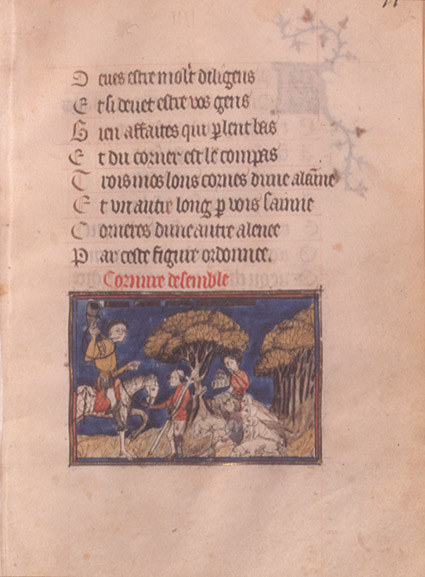 D eues estre molt diligens
E t si deuet estre vos gens
B ien affaites qui plent bas
E t du corner est le compas
T rois mos lons cornes dune alaīne
E t vn autre long p vois sainne
C orneres dune autre alence
P ar ceste figure ordonnee.
Cornure desemble